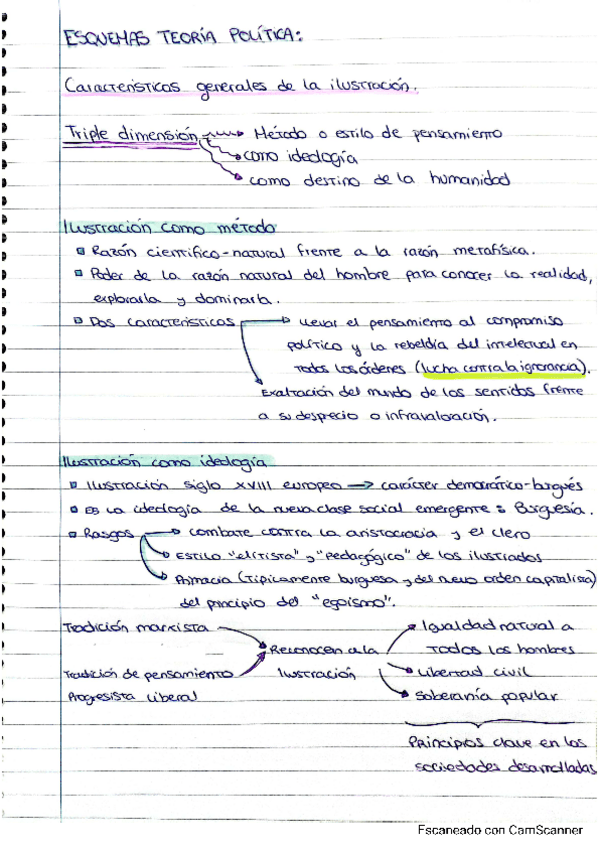 ESQUEMAS TEORÍA POLÍTICA:
Características generales de la ilustración.
Triple dimensión → Método o estilo de pensamiento
→ como ideología
→ como destino de la humanidad
Ilustración como método
Razón científico-natural frente a la razón metafísica.
Poder de la razón natural del hombre para conocer la realidad,
explorarla y dominarla.
Dos características → llevar el pensamiento al compromiso
político y la rebeldía del intelectual en
todos los órdenes (lucha contra la ignorancia).
Exaltación del mundo de los sentidos frente
a su desprecio o infravaloración.
Ilustración como ideología
Ilustración siglo XVIII europeo → carácter democrático-burgués
Es la ideología de la nueva clase social emergente: Burguesía.
Rasgos → combate contra la aristocracia y el clero
→ Estilo "elitista" y "pedagógico" de los ilustrados
→ Primacía (típicamente burguesa y del nuevo orden capitalista)
del principio del "egoísmo".
Tradición marxista
Tradición de pensamiento
Progresista liberal
→ Reconocen a la
Ilustración
→ Igualdad natural a
todos los hombres
→ Libertad civil
→ Soberanía popular
Principios clave en las
sociedades desarrolladas
Escaneado con CamScanner